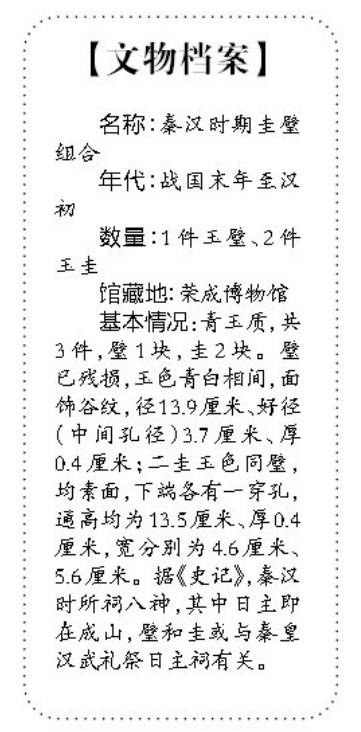 【文物档案】
名称:秦汉时期圭璧
组合
年代:战国末年至汉
初
数量:1件玉璧、2件
玉圭
馆藏地:荣成博物馆
基本情况:青玉质,共
3件,璧1块,圭2块。璧
已残损,玉色青白相间,面
饰谷纹,径13.9厘米、好径
(中间孔径)3.7厘米、厚
0.4厘米;二圭玉色同璧,
均素面,下端各有一穿孔,
通高均为13.5厘米、厚0.4
厘米,宽分别为4.6厘米、
5.6厘米。据《史记》,秦汉
时所祠八神,其中日主即
在成山,璧和圭或与秦皇
汉武礼祭日主祠有关。